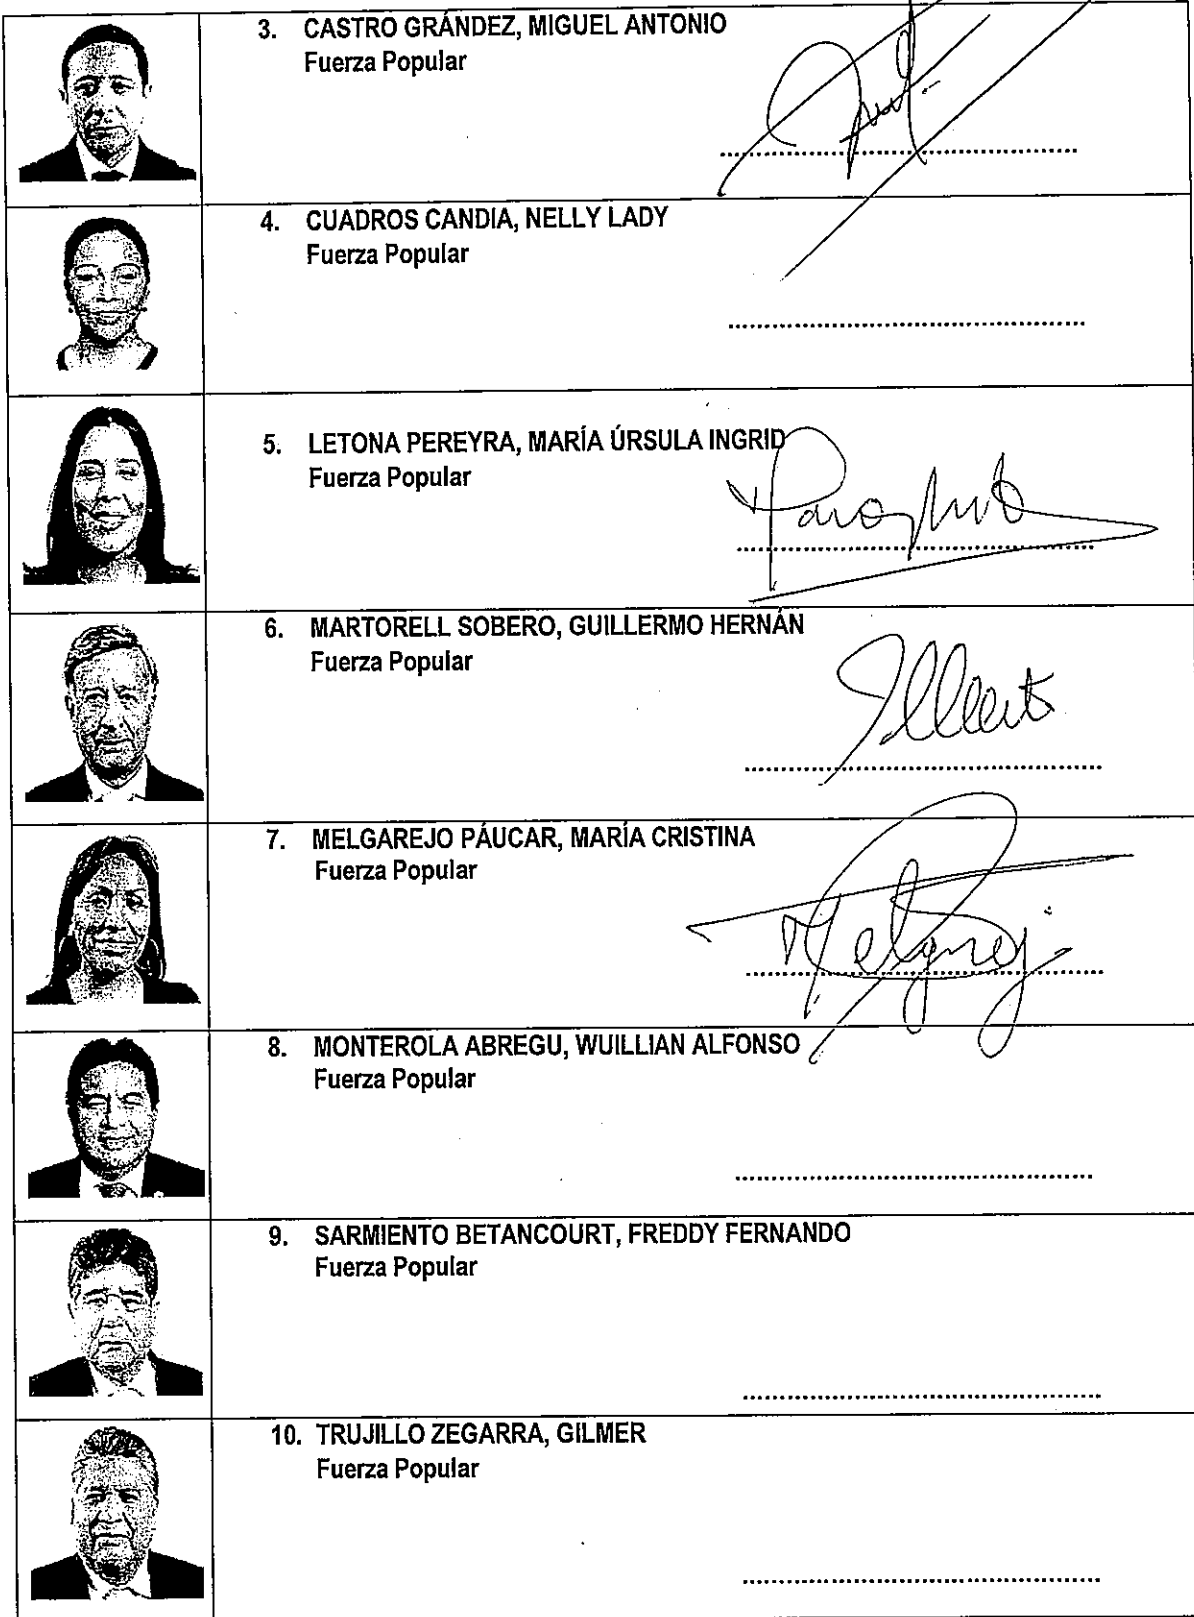 3. CASTRO GRÁNDEZ, MIGUEL ANTONIO
Fuerza Popular
4. CUADROS CANDIA, NELLY LADY
Fuerza Popular
5. LETONA PEREYRA, MARÍA ÚRSULA INGRID
Fuerza Popular
6. MARTORELL SOBERO, GUILLERMO HERNÁN
Fuerza Popular
7. MELGAREJO PÁUCAR, MARÍA CRISTINA
Fuerza Popular
8. MONTEROLA ABREGU, WUILLIAN ALFONSO
Fuerza Popular
9. SARMIENTO BETANCOURT, FREDDY FERNANDO
Fuerza Popular
10. TRUJILLO ZEGARRA, GILMER
Fuerza Popular